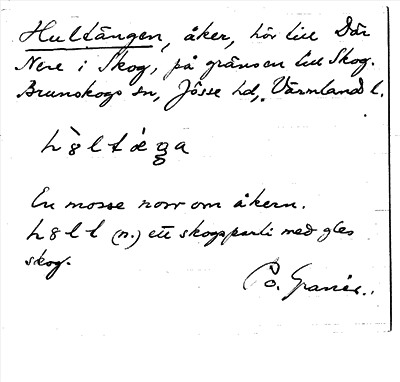 Hultängen, åker, hör till Där
Nere i Skog, på gränsen till Skog.
Brunskogs sn, Jösse hd, Värmlands l.
En mosse norr om åkern.
(n.) ett skogsparti med gles
skog.